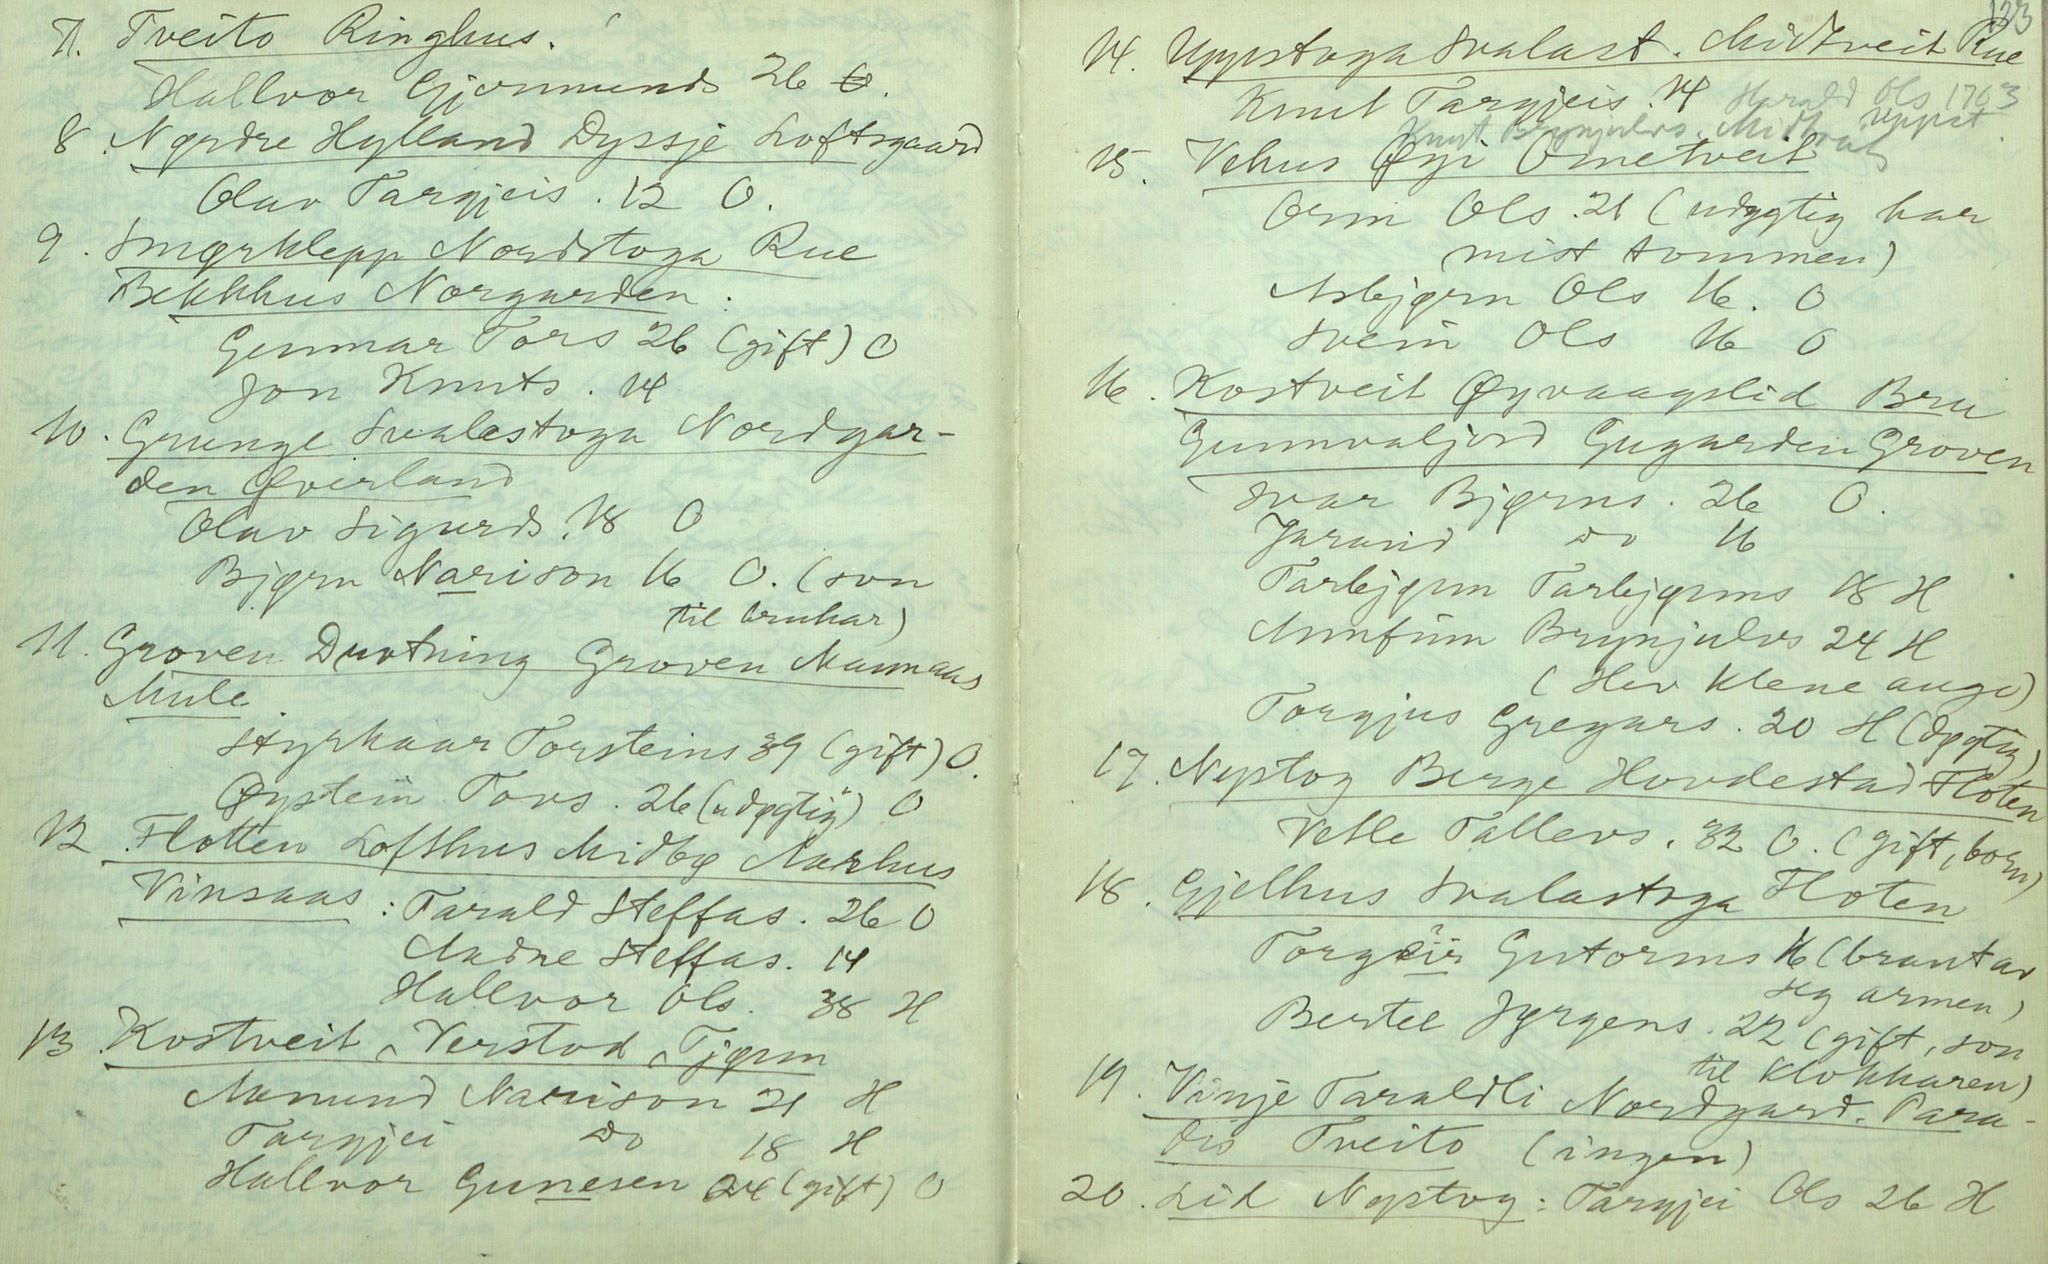 7. Tveito Ringhus.
Hallvor Gjermunds 26 O.
8. Nørdre Hylland Dyssje Loftsgaard
Olav Targjeis. 12 O.
9. Smørklepp Nordstoga Rue
Bekkhus Norgarden.
Gunnar Tors 26 (gift) O
Jon Knuts. 14
10. Grunge Svalastoga Nordgar-
den Øverland
Olav Sigurds. 18 O
Bjørn Narison 16 O. (son
til bruhar)
11. Groven Dvotning Groven Naumaas
Mule
Styrkaar Torsteins 39 (gift) O.
Øystein Tovs. 26 (udygtig) O
12. Flotten Lofthus Midbø Aarhus
Vinsaas: Tarald Steffas. 26 O
Aadne Steffas. 14
Hallvor Ols. 38 H
13. Kostveit Nerstod Tjønn
Aamund Narison 21 H
Targjei do 18 H
Hallvor Gunesen 24 (gift) O
123
14. Uppstoga Svalast. Midtveit Rue
Knut Targjeis. 14 Harald Ols 1763
Knut Brynjulvs. Midtveit uppst.
15. Vehus Øyi Ometveit
Orm Ols. 21 (udygtig har
mist tommen)
Asbjørn Ols 16. O
Svein Ols 16 O
16. Kostveit Øyvaagslid Bru
Gunnvaljord Gugarden Groven
Ivar Bjørns. 26 O.
Jarand do 16
Tarbjørn Tarbjørns 18 H
Arnfinn Brynjulvs 24 H
(Hev klene augo)
Torgjus Gregars. 20 H (dygtig)
17. Nystog Berge Hovdestad Floten
Vetle Tallevs. 32 O. (gift, born)
18. Gjelhus Svalastoga Floten
Torgeir Gutorms 16 (brunt av
seg armen)
Bertel Jørgens. 22 (gift, son
til klokkaren)
19. Vinje Taraldli Nordgard. Para-
dis Tveito (ingen)
20. Lid Nystog: Targjei Ols 26 H